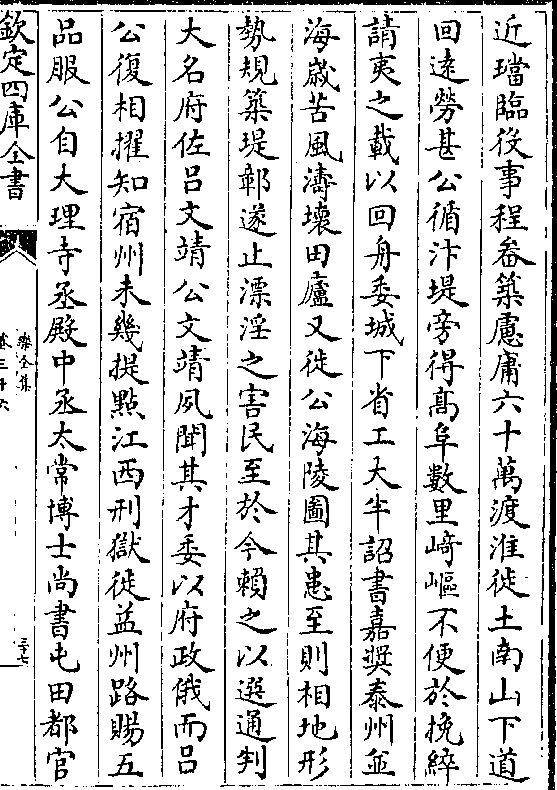 近璫臨役事程畚築慮庸六十萬渡淮徙土南山下道
回逺勞甚公循汴堤旁得髙阜數里﨑嶇不便於挽綷
請夷之載以回舟委城下省工大半詔書嘉奬泰州並
海嵗苦風濤壞田廬又徙公海陵圖其患至則相地形
勢規築堤鄣遂止漂淫之害民至於今賴之以選通判
大名府佐吕文靖公文靖夙聞其才委以府政俄而吕
公復相擢知宿州未幾提點江西刑獄徙益州路賜五
品服公自大理寺丞殿中丞太常博士尚書屯田都官
欽定四庫全書
樂全集
卷三十六
三十七